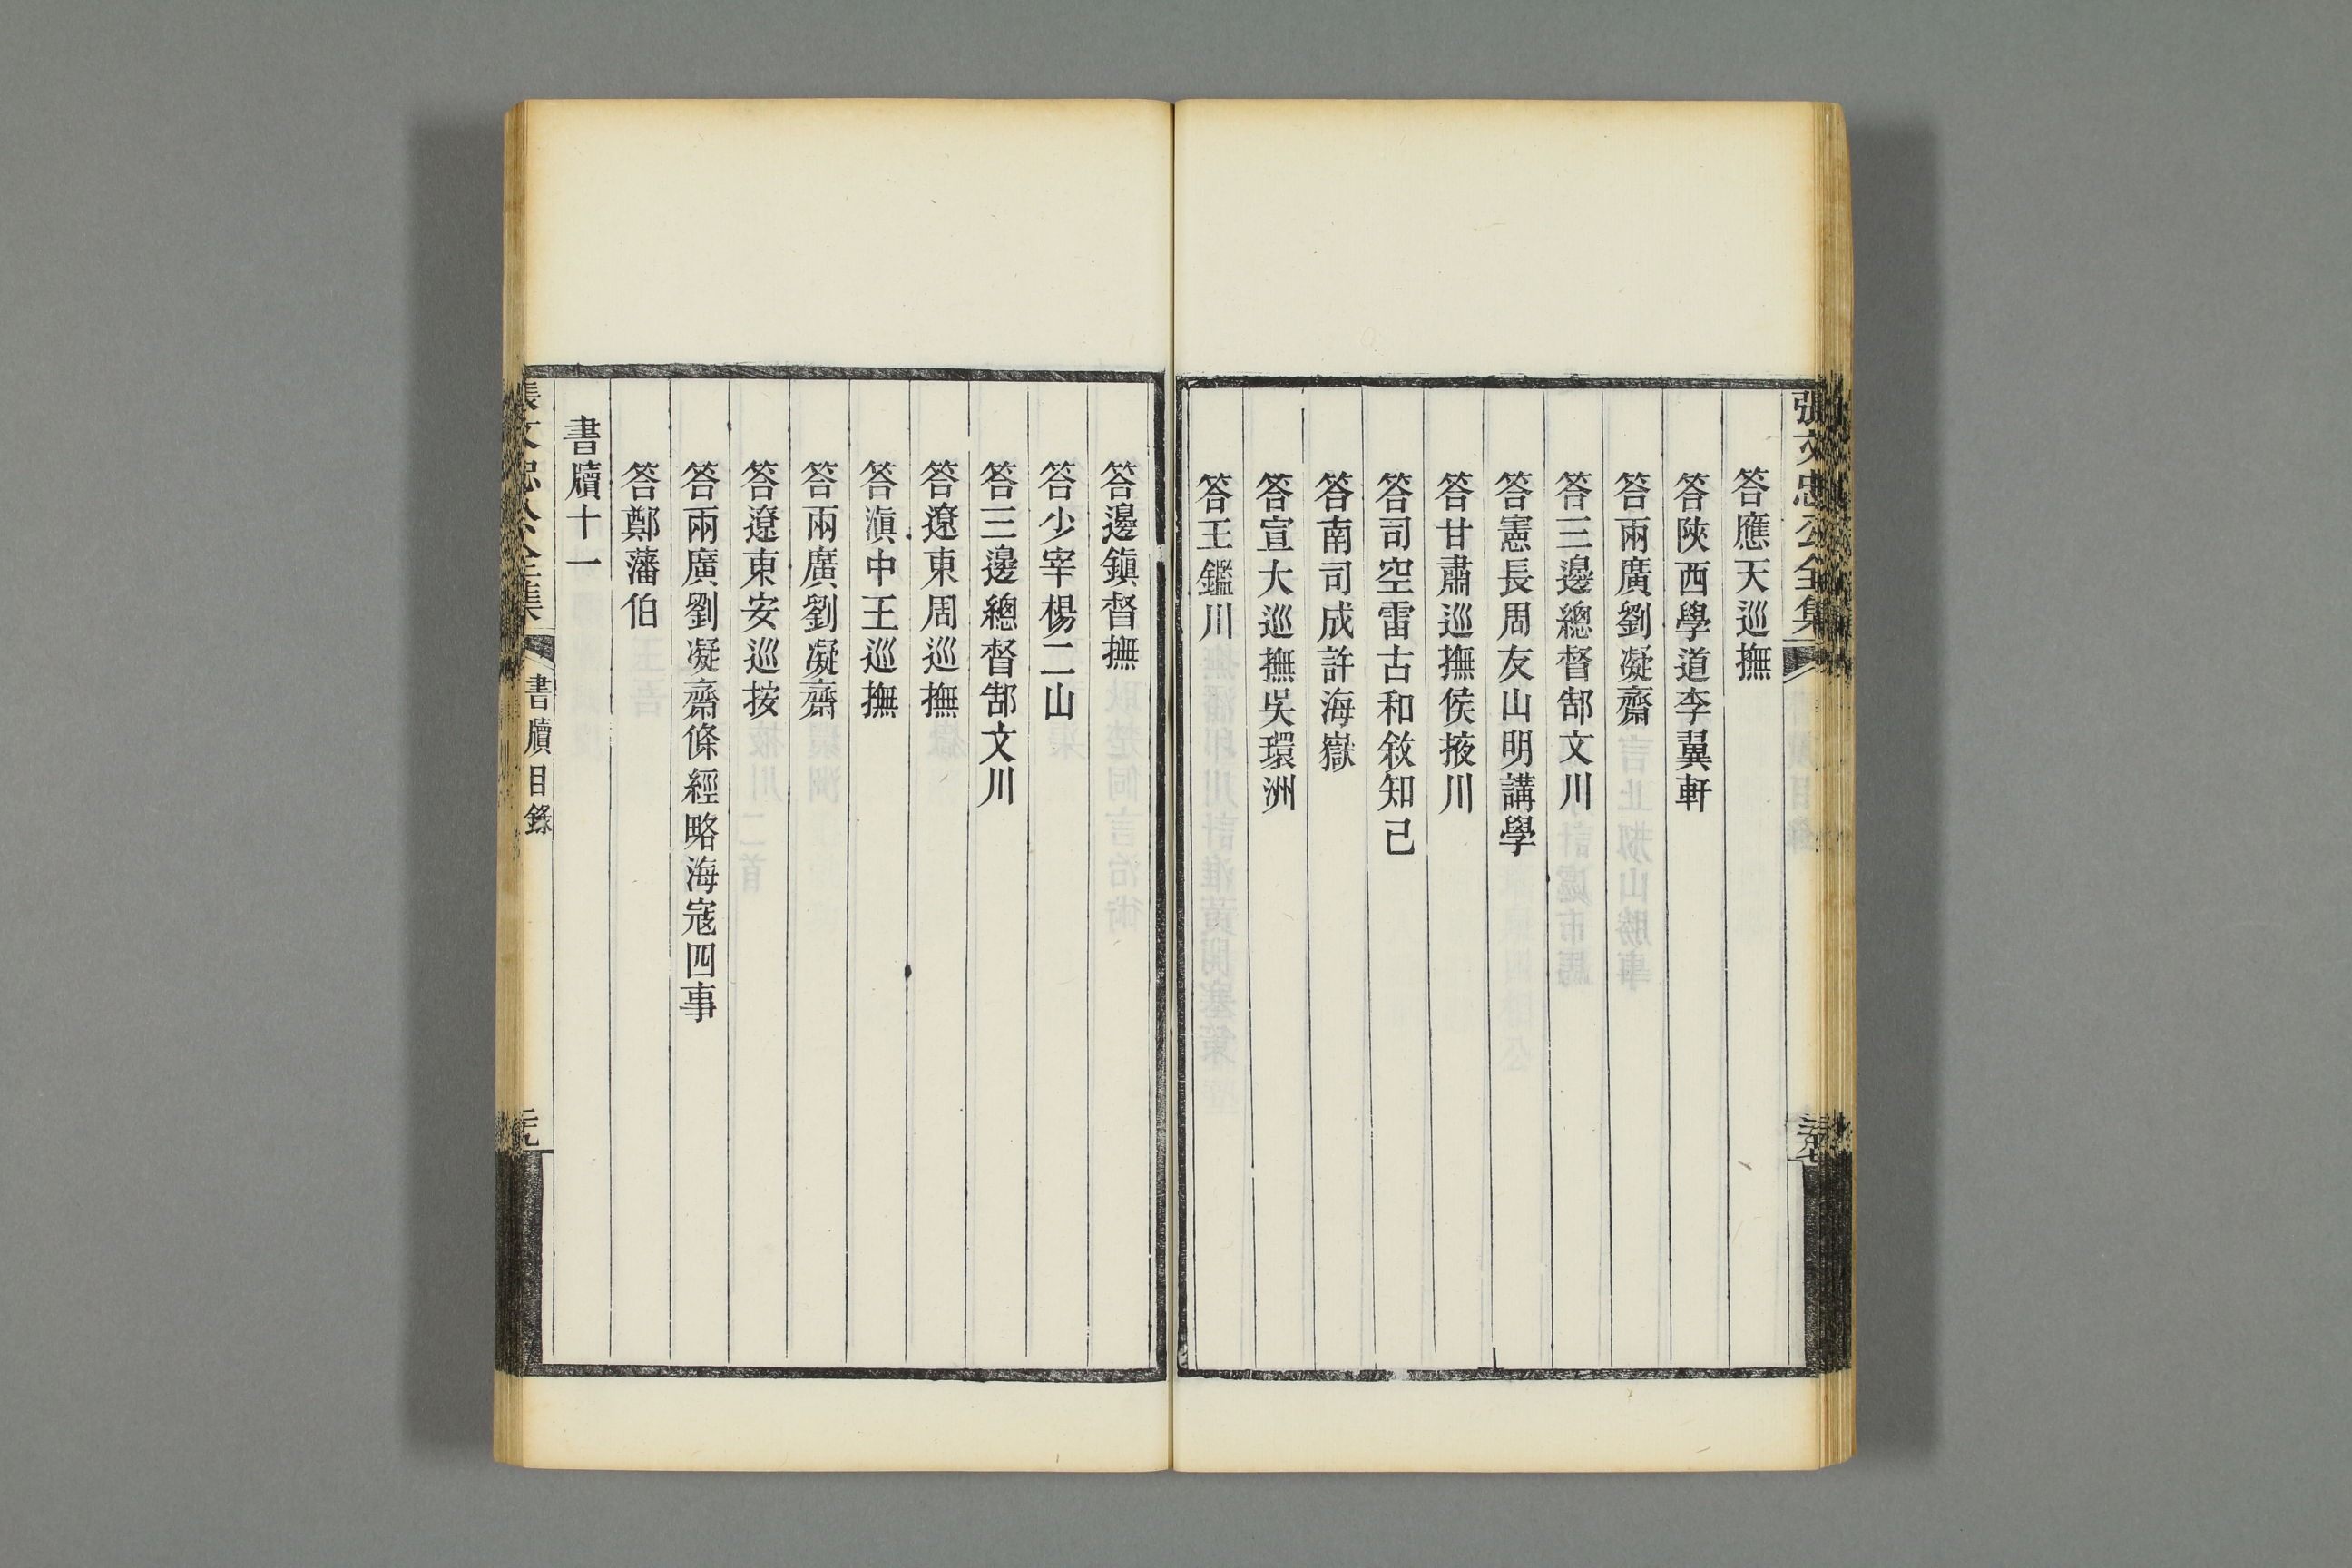 張文忠公全集
答應天巡撫
答陝西學道李翼軒
答兩廣劉凝齋
答三邊總督郜文川
答憲長周友山明講學
答甘肅巡撫侯掖川
答司空雷古和敘知己
答南司成許海嶽
答宣大巡撫吳環洲
答王鑑川
答邊鎭督撫
答少宰楊二山
答三邊總督郜文川
答遼東周巡撫
答滇中王巡撫
答兩廣劉凝齋
答遼東安巡按
答兩廣劉凝齋條經略海寇四事
答鄭藩伯
書牘十一
張文忠公全集
書牘目錄